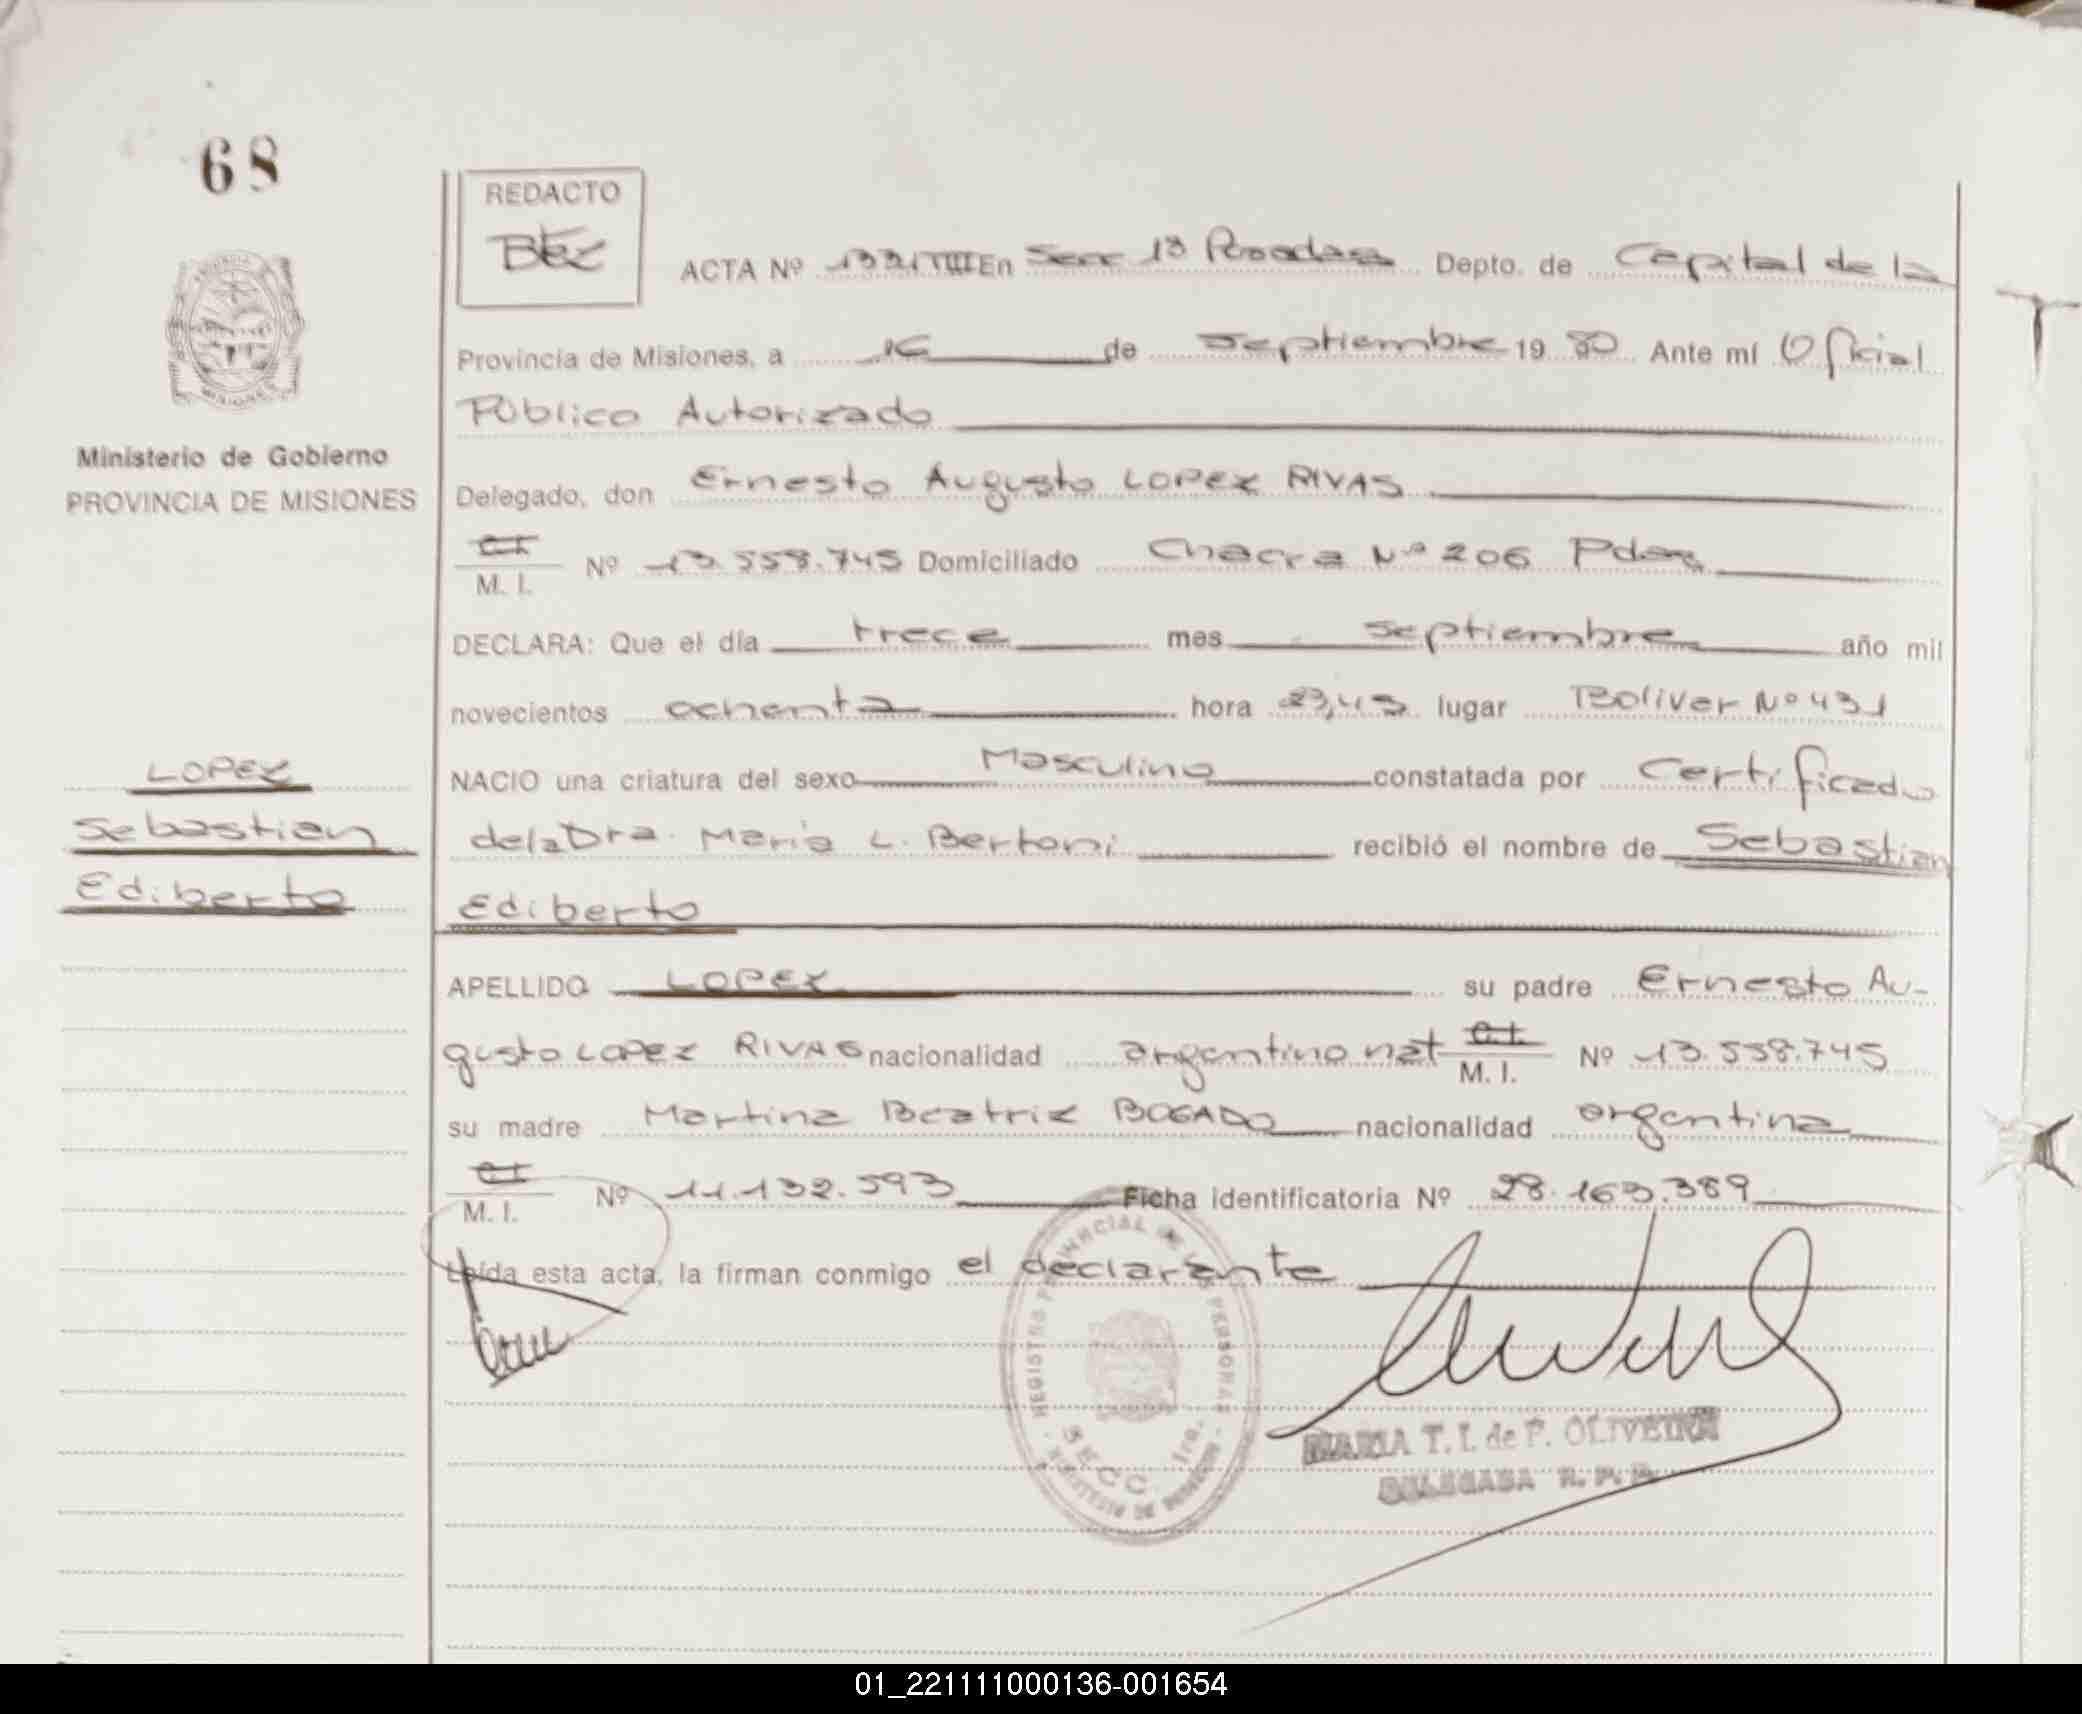 68
REDACTO
ACTA Nº En Secc 1ª Posadas Depto. de Capital de la
Provincia de Misiones, a 16 de Septiembre 19 80 Ante mí Oficial
Público Autorizado
Delegado, don Ernesto Augusto LOPEZ RIVAS
C.I. M. I. Nº 13.558.745 Domiciliado Chacra Nº 206 Pdas
DECLARA: Que el día trece mes septiembre año mil
novecientos ochenta hora 23,45 lugar Bolivar Nº 431
NACIO una criatura del sexo Masculino constatada por Certificado
de la Dra. Maria L. Bertoni recibió el nombre de Sebastian
Ediberto
APELLIDO LOPEZ su padre Ernesto Au-
gusto LOPEZ RIVAS nacionalidad argentino nat C.I. M. I. Nº 13.558.745
su madre Martina Beatriz BOGADO nacionalidad argentina
C.I. M. I. Nº 11.132.593 Ficha identificatoria Nº 28.163.389
Leída esta acta, la firman conmigo el declarante
Ministerio de Gobierno
PROVINCIA DE MISIONES
LOPEZ
Sebastian
Ediberto
REGISTRO PROVINCIAL DE LAS PERSONAS
SECC. 1ra.
MARIA T. I. de F. OLIVEIRA
DELEGADA R. P. P.
01_221111000136-001654